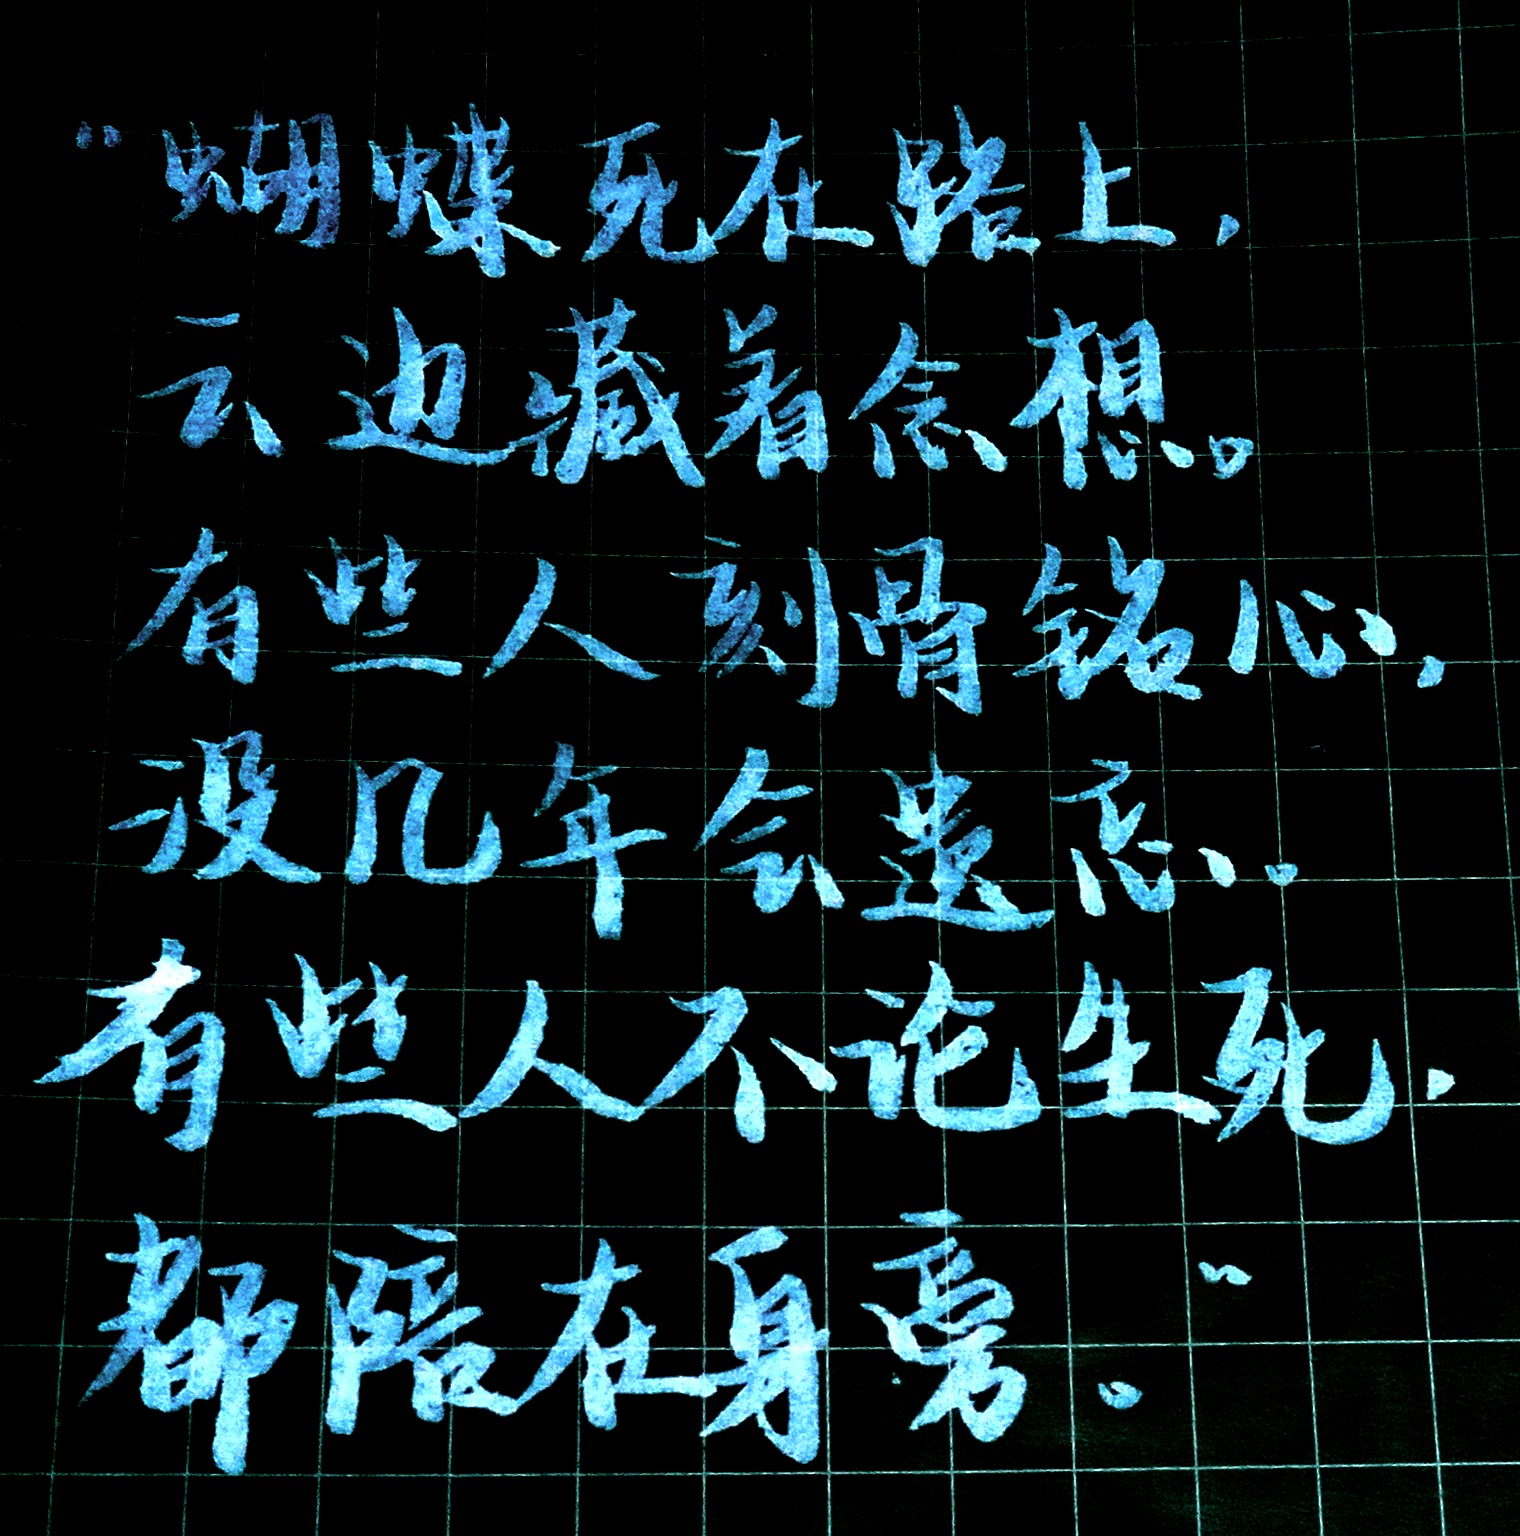 “蝴蝶死在路上,
云边藏着念想。
有些人刻骨铭心,
没几年会遗忘。
有些人不论生死,
都陪在身旁。”